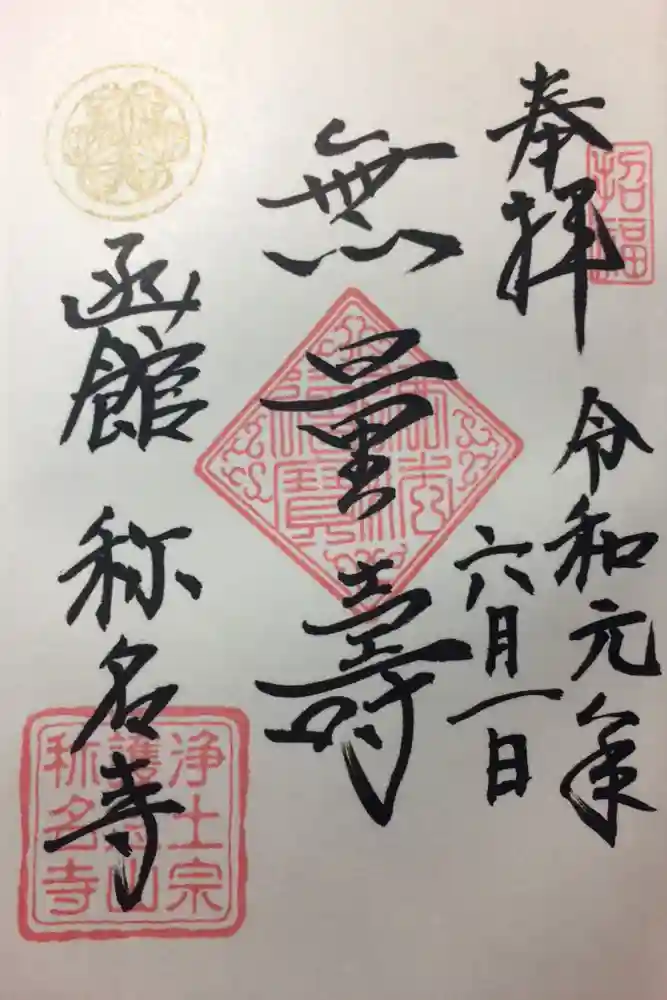 奉拝
招福
令和元年
六月一日
無量壽
佛法僧寳
函館
称名寺
浄土宗
護念山
称名寺